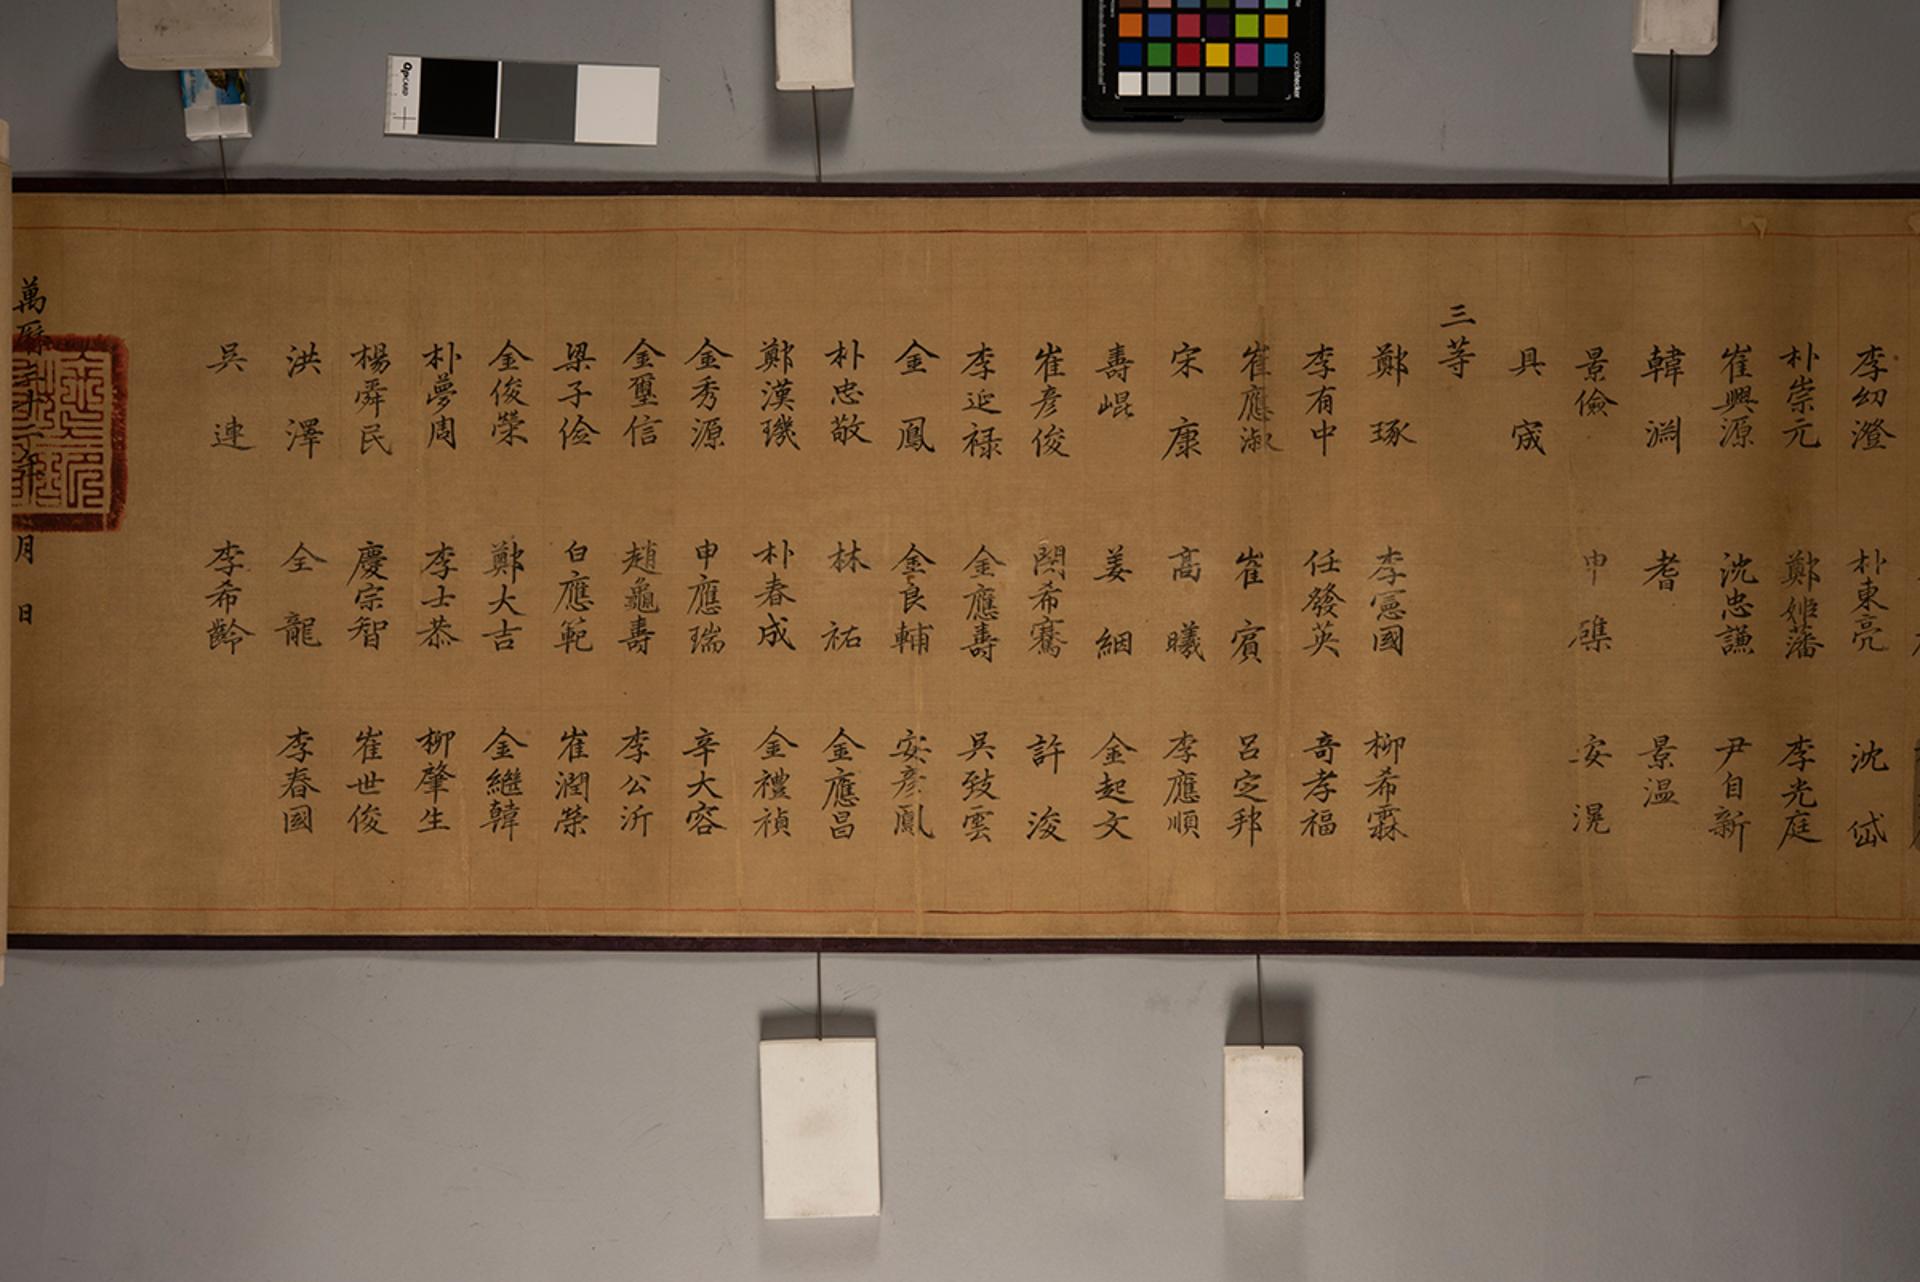 李幼澄 朴東亮 沈岱
朴崇元 鄭姬藩 李光庭
崔興源 沈忠謙 尹自新
韓淵 耆 景溫
景儉 申磼 安滉
具宬
三等
鄭琢 李憲國 柳希霖
李有中 任發英 奇孝福
崔應淑 崔賓 呂定邦
宋康 高曦 李應順
壽崐 姜絪 金起文
崔彦俊 閔希騫 許浚
李延祿 金應壽 吳致雲
金鳳 金良輔 安彦鳳
朴忠敬 林祐 金應昌
鄭漢璣 朴春成 金禮禎
金秀源 申應瑞 辛大容
金璽信 趙龜壽 李公沂
梁子儉 白應範 崔潤榮
金俊榮 鄭大吉 金繼韓
朴夢周 李士恭 柳肇生
楊舜民 慶宗智 崔世俊
洪澤 全龍 李春國
吳連 李希齡
萬曆 月 日
OpCARD
colorchecker